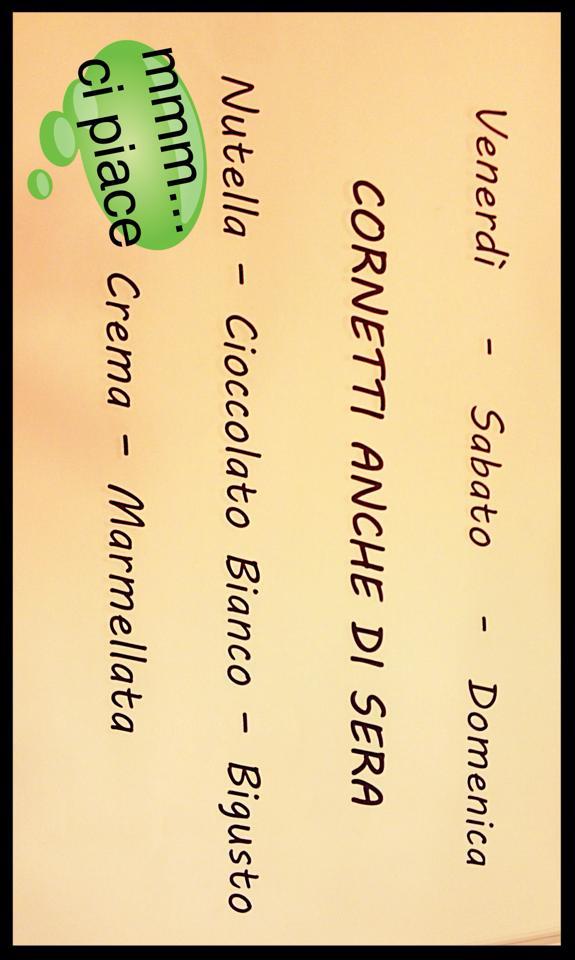 Venerdì - Sabato - Domenica
CORNETTI ANCHE DI SERA
Nutella - Cioccolato Bianco - Bigusto
Crema - Marmellata
mmm...
ci piace